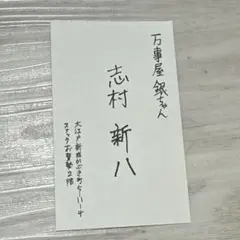 万事屋 銀ちゃん
志村 新八
大江戸新宿かぶき町
スナックお登勢2階